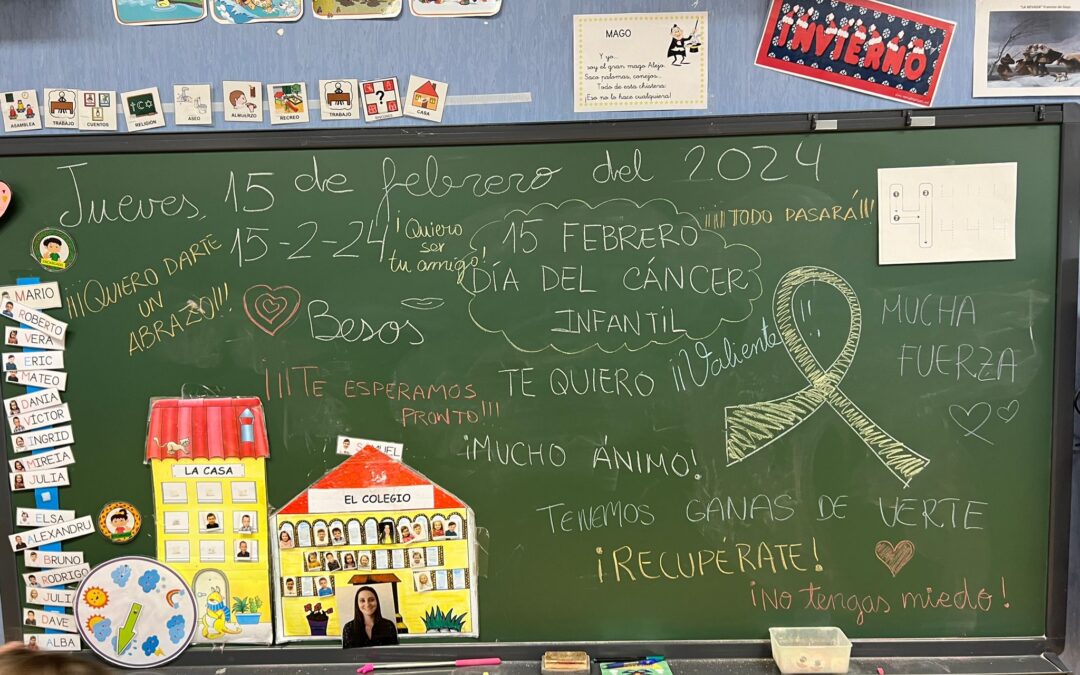 MAGO
Y yo...
soy el gran mago Alejo.
Saco palomas, conejos...
Todo de esta chistera:
¡Eso no lo hace cualquiera!
INVIERNO
ASAMBLEA
TRABAJO
CUENTOS
RELIGIÓN
ASEO
ALMUERZO
RECREO
TRABAJO
RINCONES
CASA
Jueves, 15 de febrero del 2024
15-2-24
¡Quiero
ser
tu amigo!
15 FEBRERO
DÍA DEL CÁNCER
INFANTIL
¡¡¡¡¡TODO PASARÁ!!!
4
¡¡¡QUIERO DARTE
UN
ABRAZO!!!
Besos
¡¡¡TE ESPERAMOS
PRONTO!!!
TE QUIERO
¡¡Valiente!!
MUCHA
FUERZA!
¡MUCHO ÁNIMO!
TENEMOS GANAS DE VERTE
¡RECUPÉRATE!
¡No tengas miedo!
MARIO
ROBERTO
VERA
ERIC
MATEO
DANIA
VÍCTOR
INGRID
MIREIA
JULIA
ELSA
ALEXANDRU
BRUNO
RODRIGO
DAVE
ALBA
SAMUEL
LA CASA
EL COLEGIO